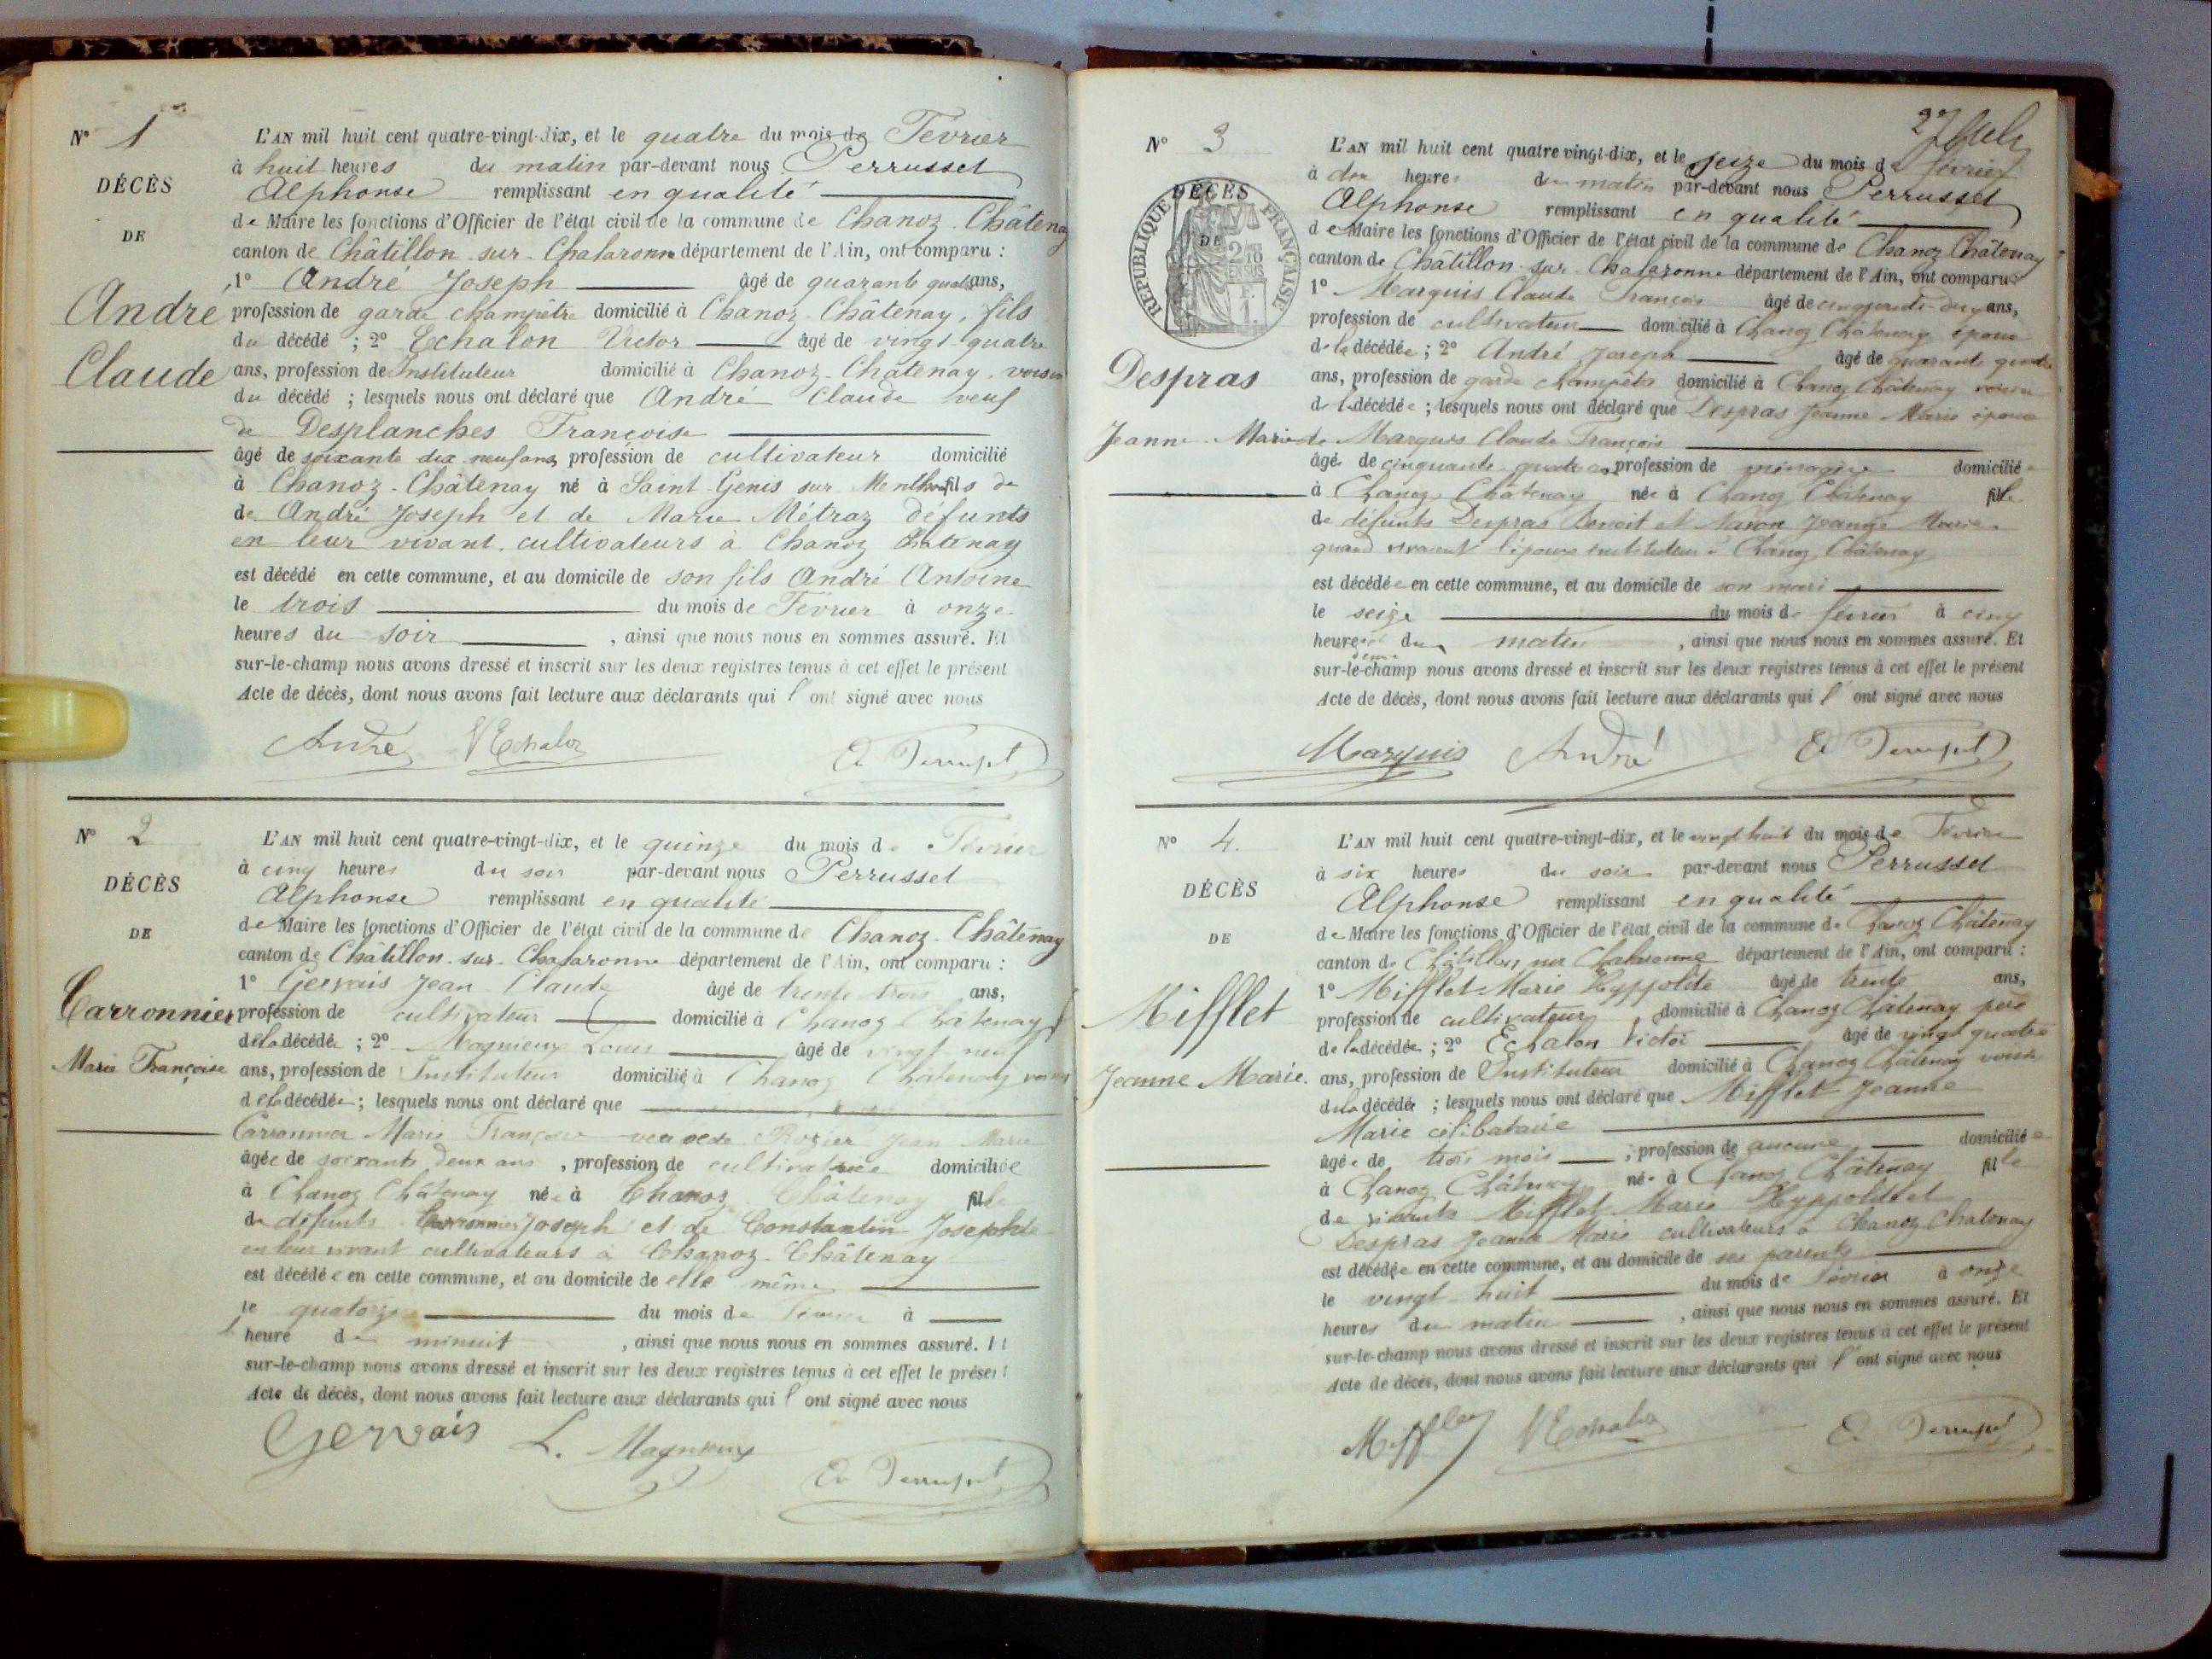 N° 1
DÉCÈS
DE
André
Claude
L'AN mil huit cent quatre-vingt-dix, et le quatre du mois de Février
à huit heures du matin par-devant nous Perrusset
Alphonse remplissant en qualité
de Maire les fonctions d'Officier de l'état civil de la commune de Chanoz-Châtenay
canton de Châtillon-sur-Chalaronne département de l'Ain, ont comparu :
1° André Joseph âgé de quarante quatre ans,
profession de garde champêtre domicilié à Chanoz-Châtenay, fils
du décédé ; 2° Echalon Victor âgé de vingt-quatre
ans, profession de Instituteur domicilié à Chanoz-Châtenay, voisin
du décédé ; lesquels nous ont déclaré que André Claude veuf
de Desplanches Françoise
âgé de soixante dix neuf ans, profession de cultivateur domicilié
à Chanoz-Châtenay né à Saint-Genis sur Menthon fils de
de André Joseph et de Marie Métraz défunts
en leur vivant cultivateurs à Chanoz Châtenay
est décédé en cette commune, et au domicile de son fils André Antoine
le trois du mois de Février à onze
heures du soir, ainsi que nous nous en sommes assuré. Et
sur-le-champ nous avons dressé et inscrit sur les deux registres tenus à cet effet le présent
Acte de décès, dont nous avons fait lecture aux déclarants qui l'ont signé avec nous
André VEchalon A Perrusset
N° 2
DÉCÈS
DE
Carronnier
Marie Françoise
L'AN mil huit cent quatre-vingt-dix, et le quinze du mois de Février
à cinq heures du soir par-devant nous Perrusset
Alphonse remplissant en qualité
de Maire les fonctions d'Officier de l'état civil de la commune de Chanoz-Châtenay
canton de Châtillon-sur-Chalaronne département de l'Ain, ont comparu :
1° Gervais Jean Claude âgé de trente trois ans,
profession de cultivateur domicilié à Chanoz Châtenay
de la décédée ; 2° Magnieux Louis âgé de vingt-neuf
ans, profession de Instituteur domicilié à Chanoz Châtenay voisin
de la décédée ; lesquels nous ont déclaré que
Carronnier Marie Françoise veuve de Rozier Jean Marie
âgée de soixante deux ans, profession de cultivatrice domiciliée
à Chanoz Châtenay née à Chanoz Châtenay fille
de défunts Carronnier Joseph et de Constantin Josephte
en leur vivant cultivateurs à Chanoz-Châtenay
est décédée en cette commune, et au domicile de elle même
le quatorze du mois de Février à
heure de minuit, ainsi que nous nous en sommes assuré. Et
sur-le-champ nous avons dressé et inscrit sur les deux registres tenus à cet effet le présent
Acte de décès, dont nous avons fait lecture aux déclarants qui l'ont signé avec nous
Gervais L. Magnieux A Perrusset
27
N° 3
DÉCÈS
DE
RÉPUBLIQUE FRANÇAISE
Despras
Jeanne-Marie
L'AN mil huit cent quatre vingt-dix, et le seize du mois de février
à dix heures du matin par-devant nous Perrusset
Alphonse remplissant en qualité
de Maire les fonctions d'Officier de l'état civil de la commune de Chanoz Châtenay
canton de Châtillon-sur-Chalaronne département de l'Ain, ont comparu
1° Marquis Claude François âgé de cinquante dix ans,
profession de cultivateur domicilié à Chanoz Châtenay époux
de la décédée ; 2° André Joseph âgé de quarante quatre
ans, profession de garde champêtre domicilié à Chanoz Châtenay voisin
de la décédée ; lesquels nous ont déclaré que Despras Jeanne-Marie épouse
de Marquis Claude François
âgée de cinquante quatre ans profession de ménagère domiciliée
à Chanoz Châtenay née à Chanoz Châtenay fille
de défunts Despras Benoit et Jeanne Marie
quand vivaient Chanoz Châtenay
est décédée en cette commune, et au domicile de son mari
le seize du mois de février à cinq
heures et demie du matin, ainsi que nous nous en sommes assuré. Et
sur-le-champ nous avons dressé et inscrit sur les deux registres tenus à cet effet le présent
Acte de décès, dont nous avons fait lecture aux déclarants qui l'ont signé avec nous
Marquis André A Perrusset
N° 4.
DÉCÈS
DE
Mifflet
Jeanne Marie.
L'AN mil huit cent quatre-vingt-dix, et le vingt huit du mois de Février
à six heures du soir par-devant nous Perrusset
Alphonse remplissant en qualité
de Maire les fonctions d'Officier de l'état civil de la commune de Chanoz Châtenay
canton de Châtillon sur Chalaronne département de l'Ain, ont comparu :
1° Mifflet Marie Hyppolite âgé de trente ans,
profession de cultivateur domicilié à Chanoz Châtenay père
de la décédée ; 2° Echalon Victor âgé de vingt quatre
ans, profession de Instituteur domicilié à Chanoz Châtenay voisin
de la décédée ; lesquels nous ont déclaré que Mifflet Jeanne
Marie célibataire
âgée de trois mois, profession de aucune domiciliée
à Chanoz Châtenay née à Chanoz Châtenay fille
de vivants Mifflet Marie Hyppolite et
Despras Jeanne Marie cultivateurs à Chanoz Chatenay
est décédée en cette commune, et au domicile de ses parents
le vingt-huit du mois de Février à onze
heures du matin, ainsi que nous nous en sommes assuré. Et
sur-le-champ nous avons dressé et inscrit sur les deux registres tenus à cet effet le présent
Acte de décès, dont nous avons fait lecture aux déclarants qui l'ont signé avec nous
Mifflet VEchalon A Perrusset